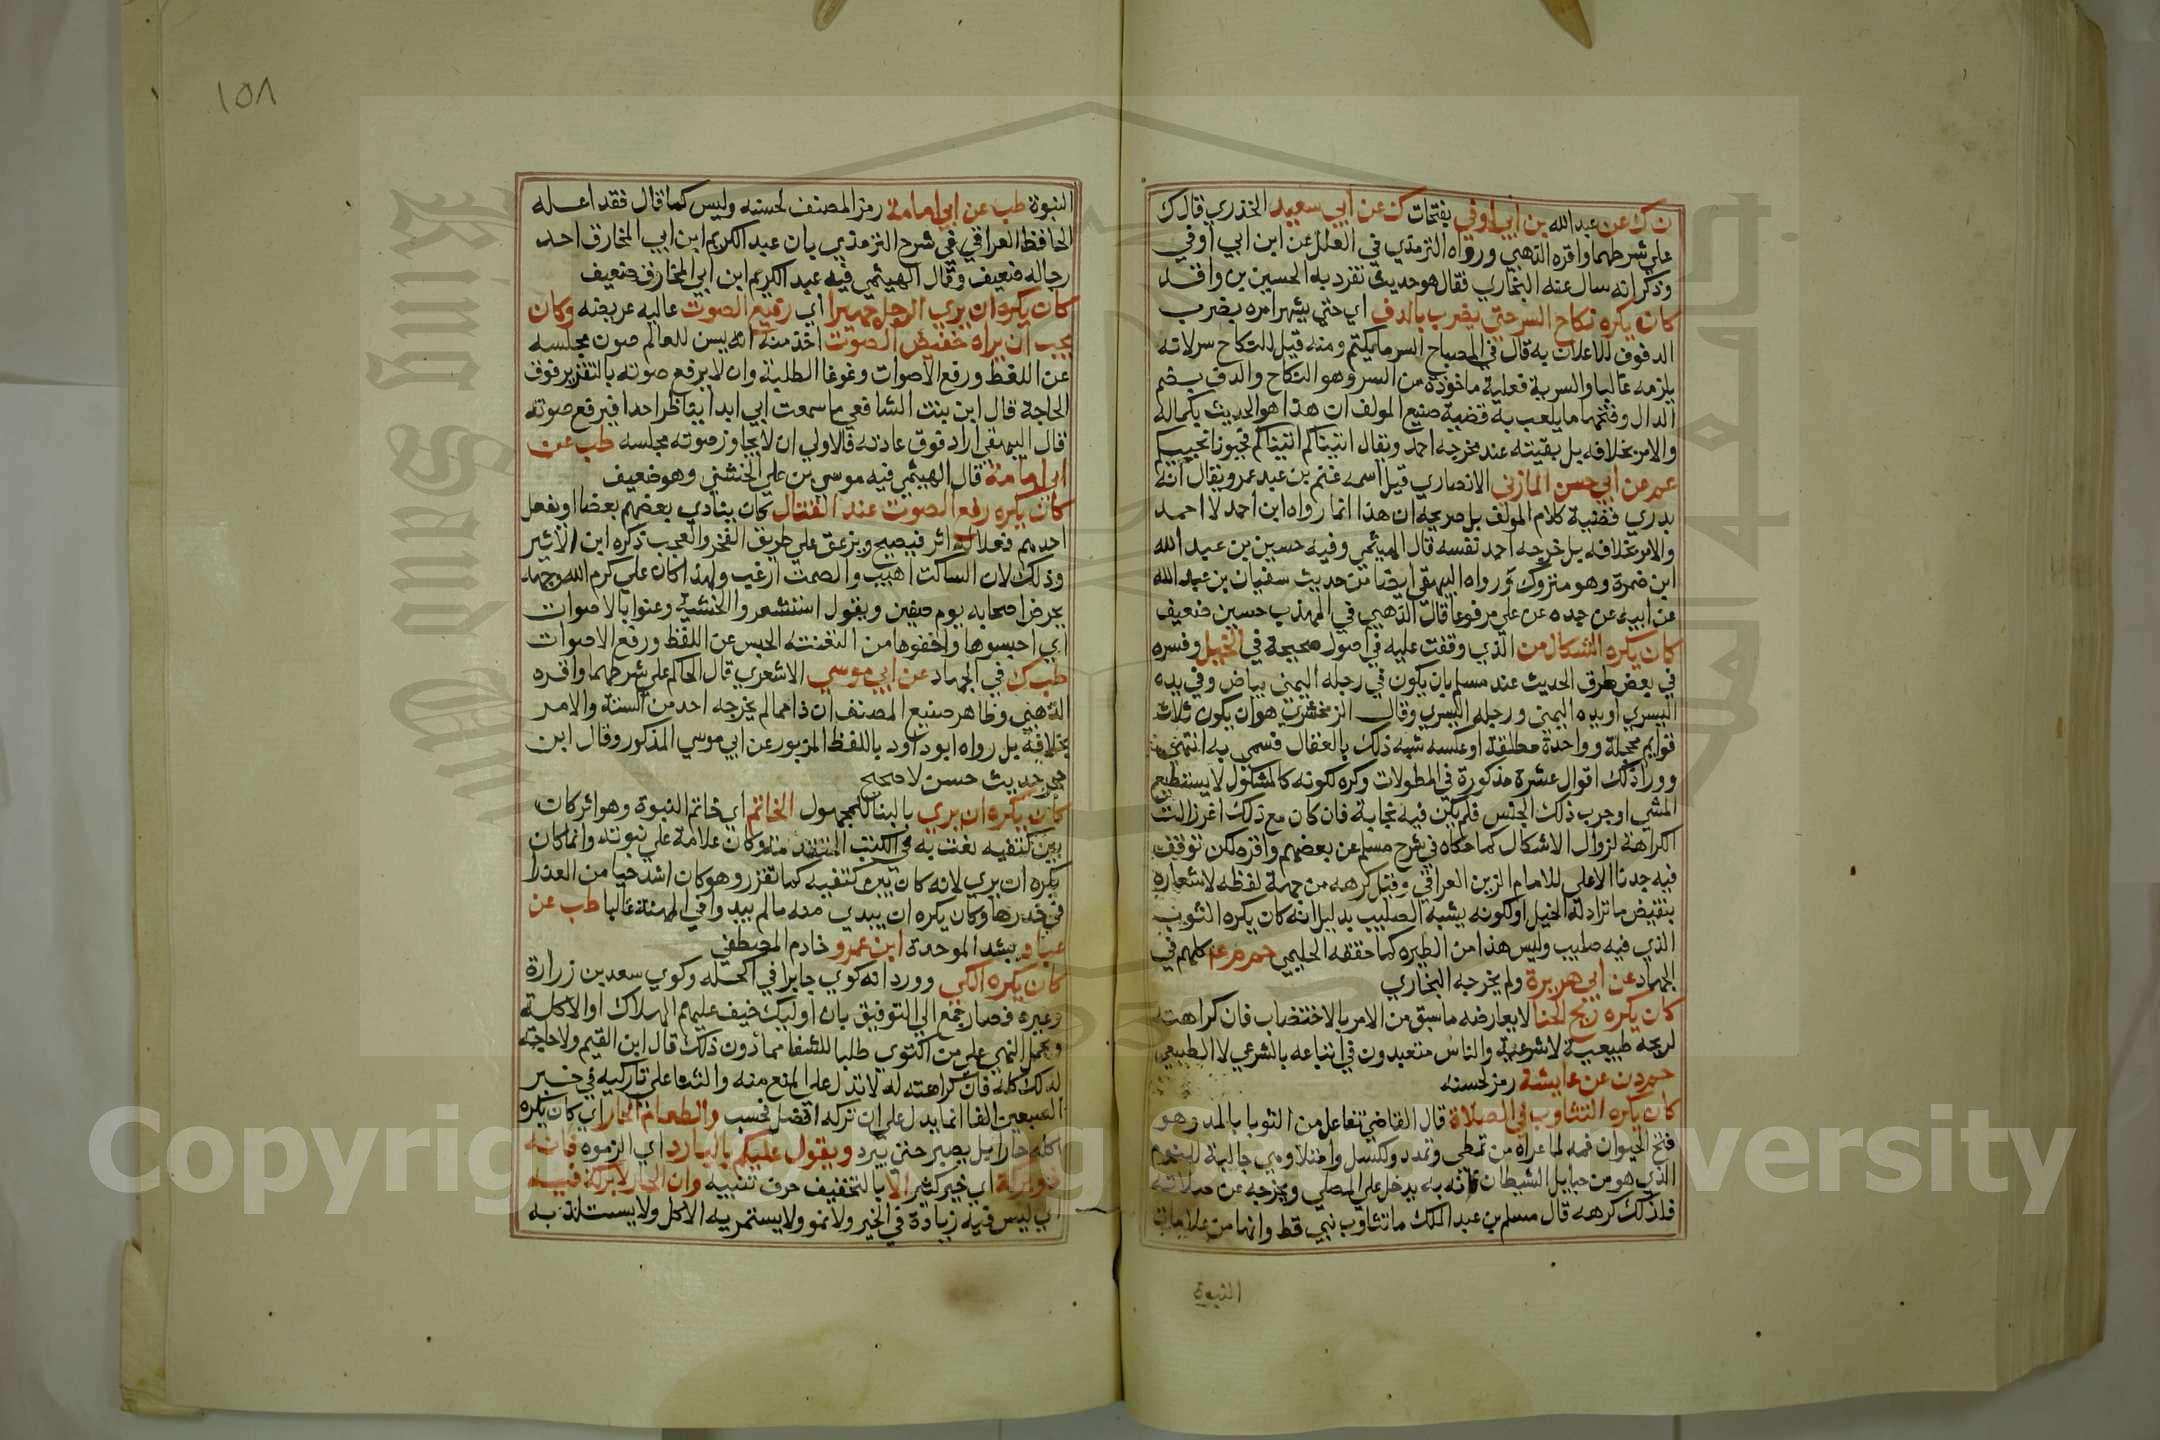 ن ك عن عبد الله بن ابي اوفي بفتحات ك عن ابي سعيد الخدري قال ك
علي شرطهما واقره الذهبي ورواه الترمذي في العلل عن ابن ابي أوفي
وذكر انه سال عنه البخاري فقال هو حديث تفرد به الحسين بن واقد
كان يكره نكاح السر حتي يضرب بالدف اي حتي يشهر امره بضرب
الدفوف للاعلان به قال في المصباح السر ما يكتم ومنه قيل للنكاح سر لانه
يلزمه غالبا والسرية فعلية ماخوذة من السر وهو النكاح والدف بضم
الدال وفتحها ما يلعب به قضية صنيع المولف ان هذا هو الحديث بكماله
والامر بخلافه بل بقيته عند مخرجه احمد ويقال اتيناكم اتيناكم فحيونا نحييكم
عم عن ابي حسن المازني الانصاري قيل اسمه غنم بن عبد عمرو يقال انه
بدري قضية كلام المولف بل صريحه ان هذا انما رواه ابن احمد لا احمد
والامر بخلافه بل خرجه احمد نفسه قال الهيثمي وفيه حسين بن عبد الله
ابن ضمرة وهو متروك ورواه البيهقي ايضا من حديث سفيان بن عبد الله
عن ابيه عن جده عن علي مرفوعا قال الذهبي في المهذب حسين ضعيف
كان يكره الشكال من الذي وقفت عليه في اصول صحيحة في الخيل وفسره
في بعض طرق الحديث عند مسلم بان يكون في رجله اليمني بياض وفي يده
اليسري او يده اليمني ورجله اليسري وقال الزمخشري هو ان يكون ثلاث
قوايم محجلة وواحدة مطلقة او عكسه شبه ذلك بالعقال فسمي به انتهي
وورا ذلك اقوال عشرة مذكورة في المطولات وكره لكونه كالمشكول لا يستطيع
المشي او جرب ذلك الجنس فلم يكن فيه نجابة فان كان مع ذلك اغر زالت
الكراهة لزوال الاشكال كما حكاه في شرح مسلم عن بعضهم واقره لكن توقف
فيه جدنا الاعلي للامام الزين العراقي وقيل كرهه من جهة لفظه لاشعاره
بنقيض ما تراد له الخيل او لكونه يشبه الصليب بدليل انه كان يكره الثوب
الذي فيه صليب وليس هذا من الطيره كما حققه الحليمي حم م عد كلهم في
الجهاد عن ابي هريرة ولم يخرجه البخاري
كان يكره ريح الحنا لا يعارضه ما سبق من الامر بالاختضاب فان كراهته
لريحه طبيعية لا شرعية والناس متعبدون في اتباعه بالشرعي لا الطبيعي
حم د ن عن عايشة رمز لحسنه
كان يكره التثاوب في الصلاة قال القاضي تفاعل من الثوبا بالمد وهو
فتح الحيوان فمه لما عراه من تمطي وتمدد وكسل وامتلا وهي جالبة للنوم
الذي هو من حبايل الشيطان فانه به يدخل علي المصلي ويخرجه عن صلاته
فلذلك كرهه قال مسلم بن عبد الملك ما تثاوب نبي قط وانها من علامات
النبوة
١٥٨
النبوة طب عن ابي امامة رمز المصنف لحسنه وليس كما قال فقد اعله
الحافظ العراقي في شرح الترمذي بان عبد الكريم ابن ابي المخارق احد
رجاله ضعيف وقال الهيثمي فيه عبد الكريم ابن ابي المخارق ضعيف
كان يكره ان يري الرجل جهيرا اي رفيع الصوت عاليه عريضه وكان
يحب ان يراه خفيض الصوت اخذ منه انه يسن للعالم صون مجلسه
عن اللغط ورفع الاصوات وغوغا الطلبة وان لا يرفع صوته بالتقرير فوق
الحاجة قال ابن بنت الشافعي ما سمعت ابي ابدا يناظر احدا فيرفع صوته
قال البيهقي اراد فوق عادته فالاولي ان لا يجاوز صوته مجلسه طب عن
ابي امامة قال الهيثمي فيه موسي بن علي الخشني وهو ضعيف
كان يكره رفع الصوت عند القتال كان ينادي بعضهم بعضا او يفعل
احدهم فعلا له اثر فيصيح ويزعق علي طريق الفخر والعجب ذكره ابن الاثير
وذلك لان الساكت اهيب والصمت ارعب ولهذا كان علي كرم الله وجهه
يحرض اصحابه يوم صفين ويقول استشعروا الخشية وعنوا بالاصوات
اي احبسوها واخفوها من التعنته الحبس عن اللغط ورفع الاصوات
طب ك في الجهاد عن ابي موسي الاشعري قال الحاكم علي شرطهما واقره
الذهبي وظاهر صنيع المصنف ان ذا مما لم يخرجه احد من الستة والامر
بخلافه بل رواه ابو داود باللفظ المزبور عن ابي موسي المذكور وقال ابن
حجر حديث حسن لا صحيح
كان يكره ان يري بالبنا للمجهول الخاتم اي خاتم النبوة وهو اثر كان
بين كتفيه نعت به في الكتب المتقدمة وكان علامة علي نبوته وانما كان
يكره ان يري لانه كان بين كتفيه كما تقرر وهو كان اشد حيا من العذرا
في خدرها وكان يكره ان يبدي منه ما لم يبدوا في المهنة غالبا طب عن
عباد بشد الموحدة ابن عمرو خادم المصطفي
كان يكره الكي وورد انه كوي جابرا في اكحله وكوي سعد بن زرارة
وغيره فصار جمع الي التوفيق بان اوليك خيف عليهم الهلاك او الاكلة
ويحمل النهي علي من اكتوي طلبا للشفا مما دون ذلك قال ابن القيم ولا حاجة
لذلك كله فان كراهته له لا تدل علي المنع منه والثنا علي تاركيه في خبر
السبعين الفا انما يدل علي ان تركه افضل فحسب والطعام الحار اي كان يكره
اكله حارا بل يصبر حتي يبرد ويقول عليكم بالبارد اي الزموه فانه
ذو بركة اي خير كثير الا بالتخفيف حرف تنبيه وان الحار لا بركة فيه
اي ليس فيه زيادة في الخير ولا نمو ولا يستمريه الاكل ولا يستلذ به
Copyright © King Saud University
King Saud University
1957